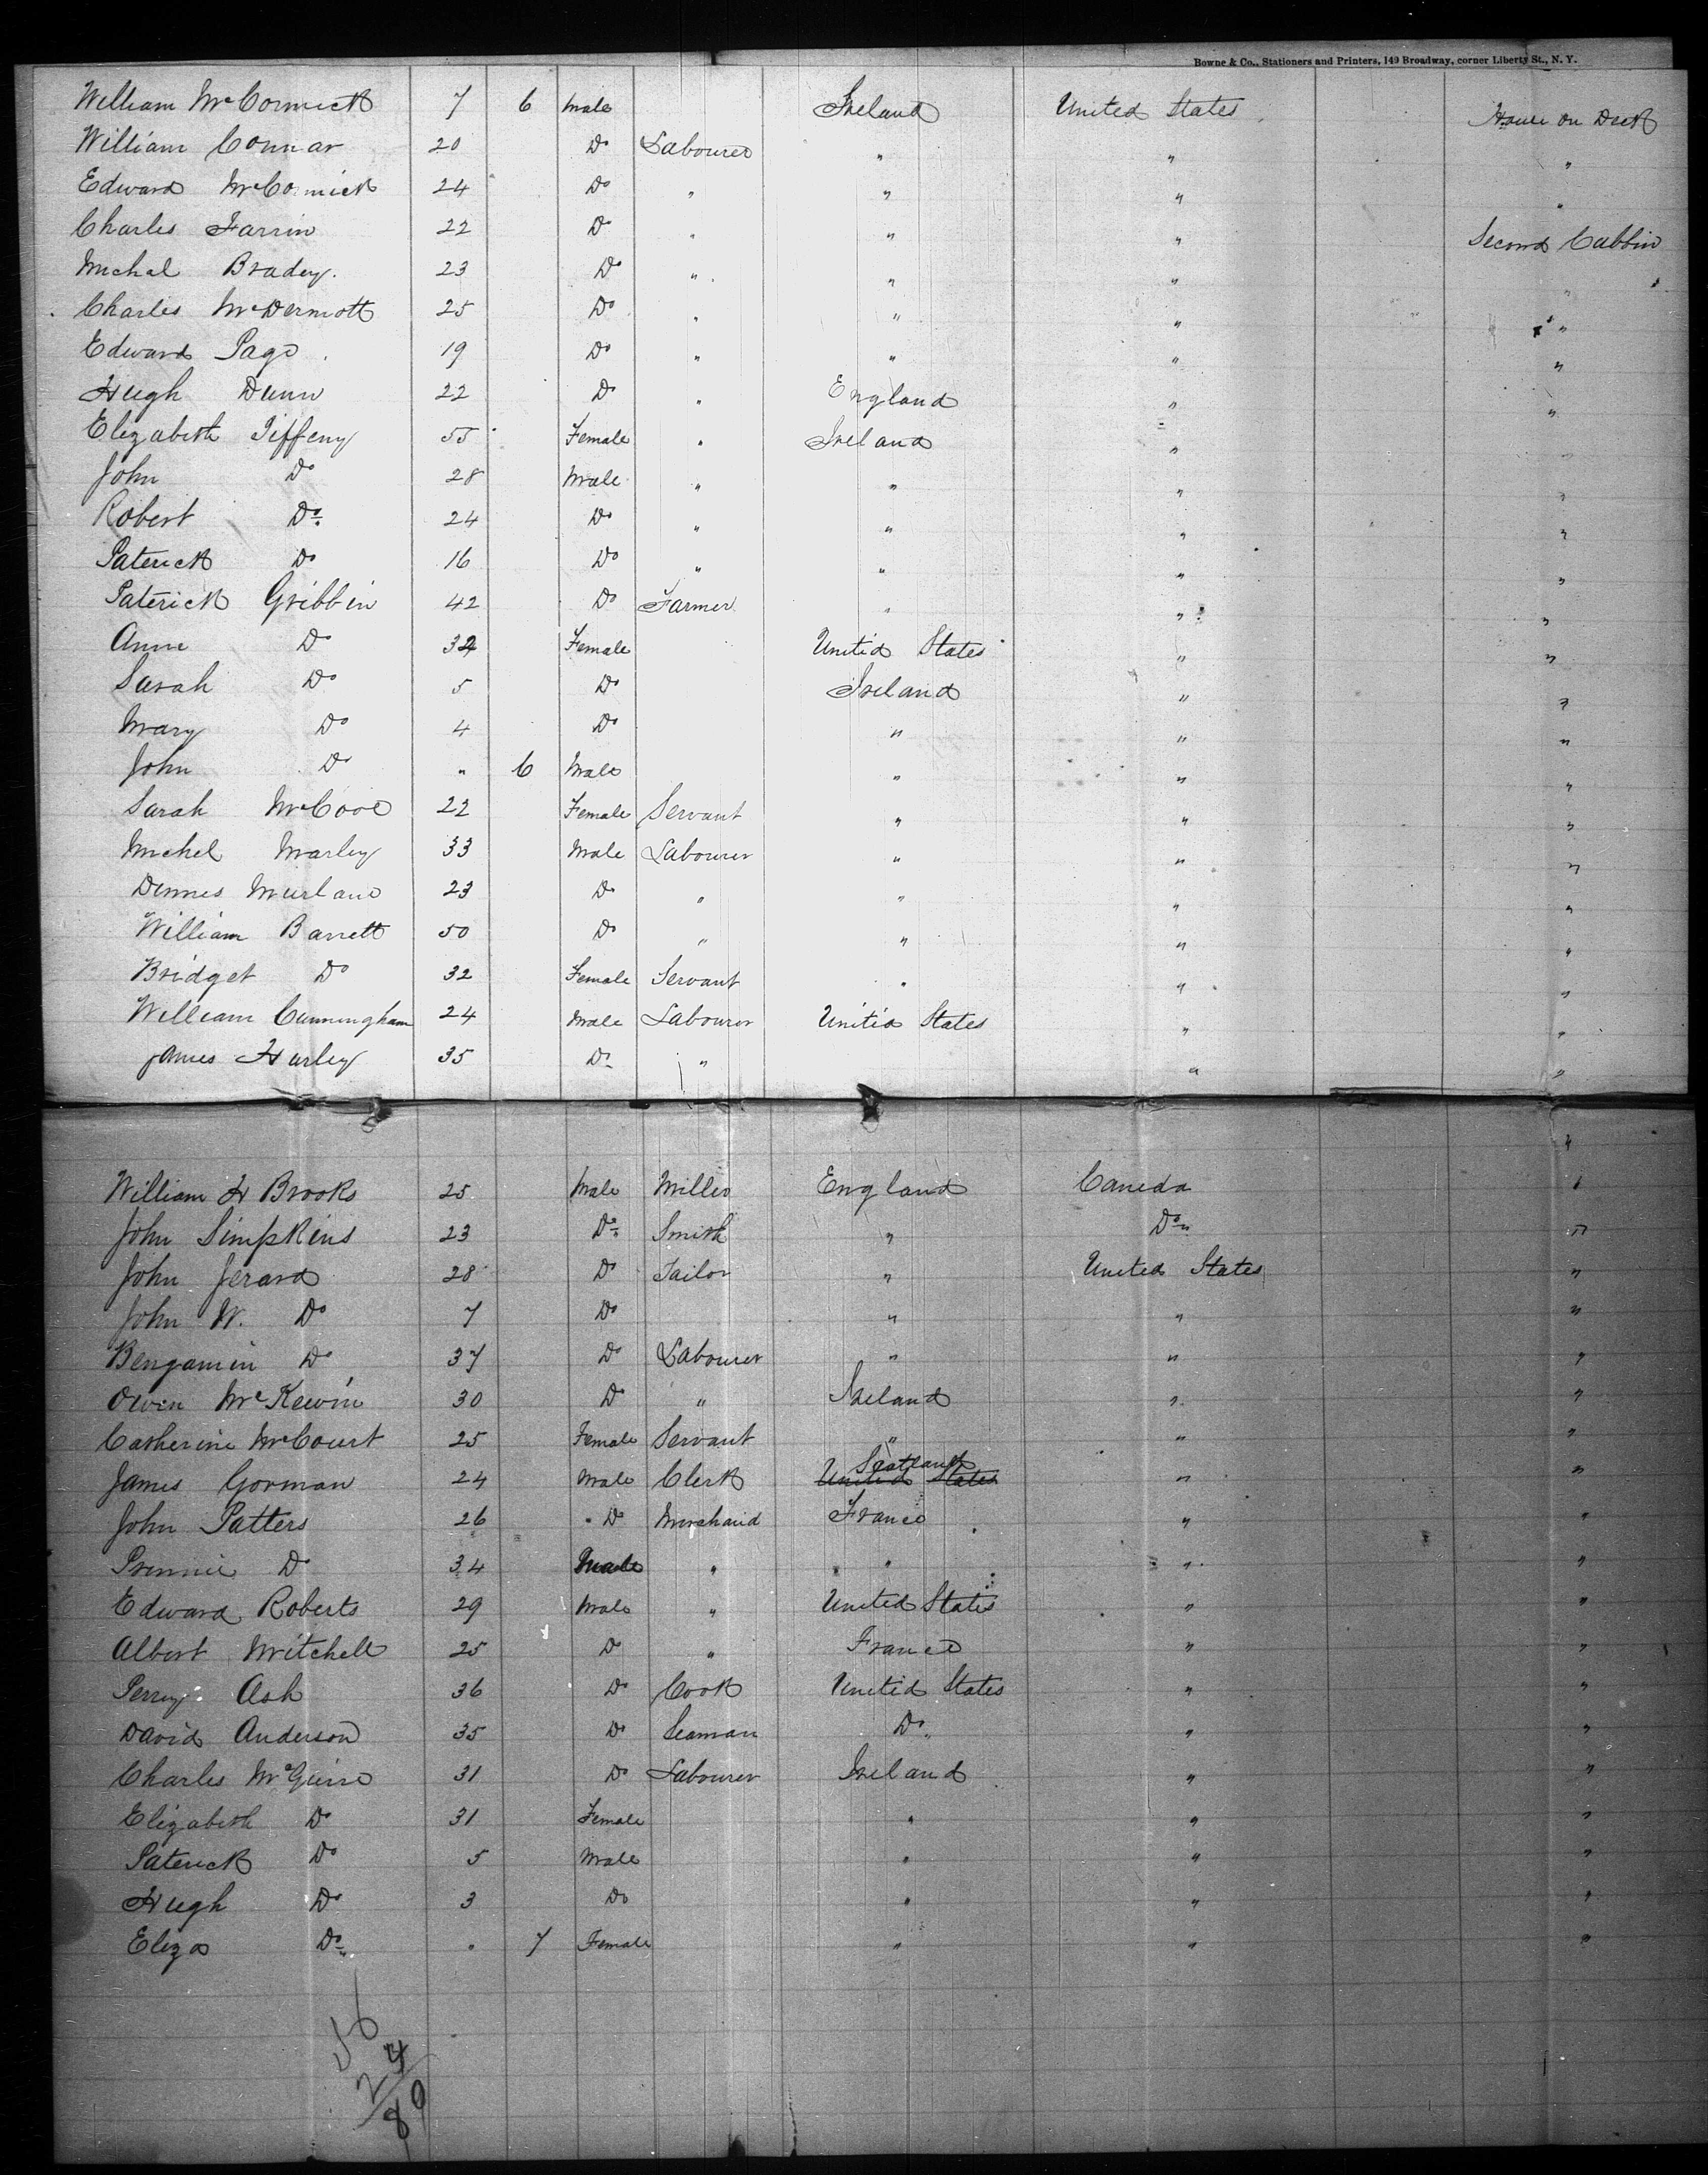 Bowne & Co., Stationers and Printers, 149 Broadway, corner Liberty St., N. Y.
William McCormick 7 6 Male Ireland United States House on Deck
William Connar 20 Do Labourer " " "
Edward McCormick 24 Do " " " "
Charles Farrin 22 Do " " " Second Cabbin
Michal Bradey. 23 Do " " " "
Charles McDermott 25 Do " " " "
Edward Page 19 Do " " " "
Hugh Dunn 22 Do " England " "
Elizabeth Tiffeny 55 Female " Ireland " "
John Do 28 Male " " " "
Robert Do 24 Do " " " "
Paterick Do 16 Do " " " "
Paterick Gribbin 42 Do Farmer " " "
Anne Do 32 Female United States " "
Sarah Do 5 Do Ireland " "
Mary Do 4 Do " " "
John Do " 6 Male " " "
Sarah McCool 22 Female Servant " " "
Michel Marley 33 Male Labourer " " "
Dennes Murland 23 Do " " " "
William Barrett 50 Do " " " "
Bridget Do 32 Female Servant " " "
William Cunningham 24 Male Labourer United States " "
James Hurley 35 Do " " "
"
William H Brooks 25 Male Miller England Caneda "
John Simpkins 23 Do Smith " Do "
John Jerard 28 Do Tailor " United States "
John W. Do 7 Do " " "
Bengamin Do 37 Do Labourer " " "
Owen McKewin 30 Do " Ireland " "
Catherine McCourt 25 Female Servant " " "
Scotland
James Gorman 24 Male Clerk United States " "
John Patters 26 Do Merchand France " "
Do 34 Male " " " "
Edward Roberts 29 Male " United States " "
Albert Mitchell 25 Do " France " "
Perry Ash 36 Do Cook United States " "
David Anderson 35 Do Seaman Do " "
Charles McGuire 31 Do Labourer Ireland " "
Elizabeth Do 31 Female " " "
Paterick Do 5 Male " " "
Hugh Do 3 Do " " "
Eliza Do " 7 Female " " "
56
24
80